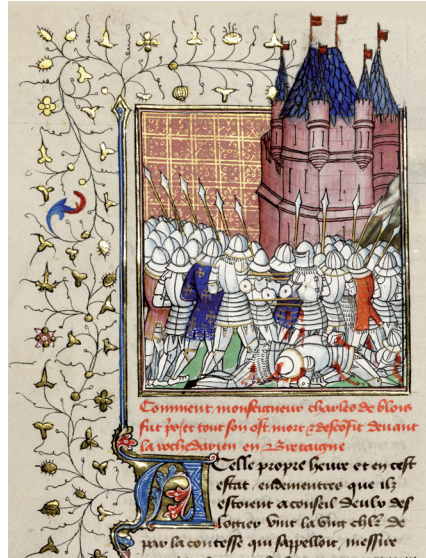 Comment monseigneur charles de blois
fut pris et tout son ost mort & desconfit devant
la rochedarien en Bretaigne
A Celle propre heure et en cest
estat, endementres que ilz
estoient a conseil deulx des
logier vint la ung chlr de
par la contesse qui sappelloit, messire